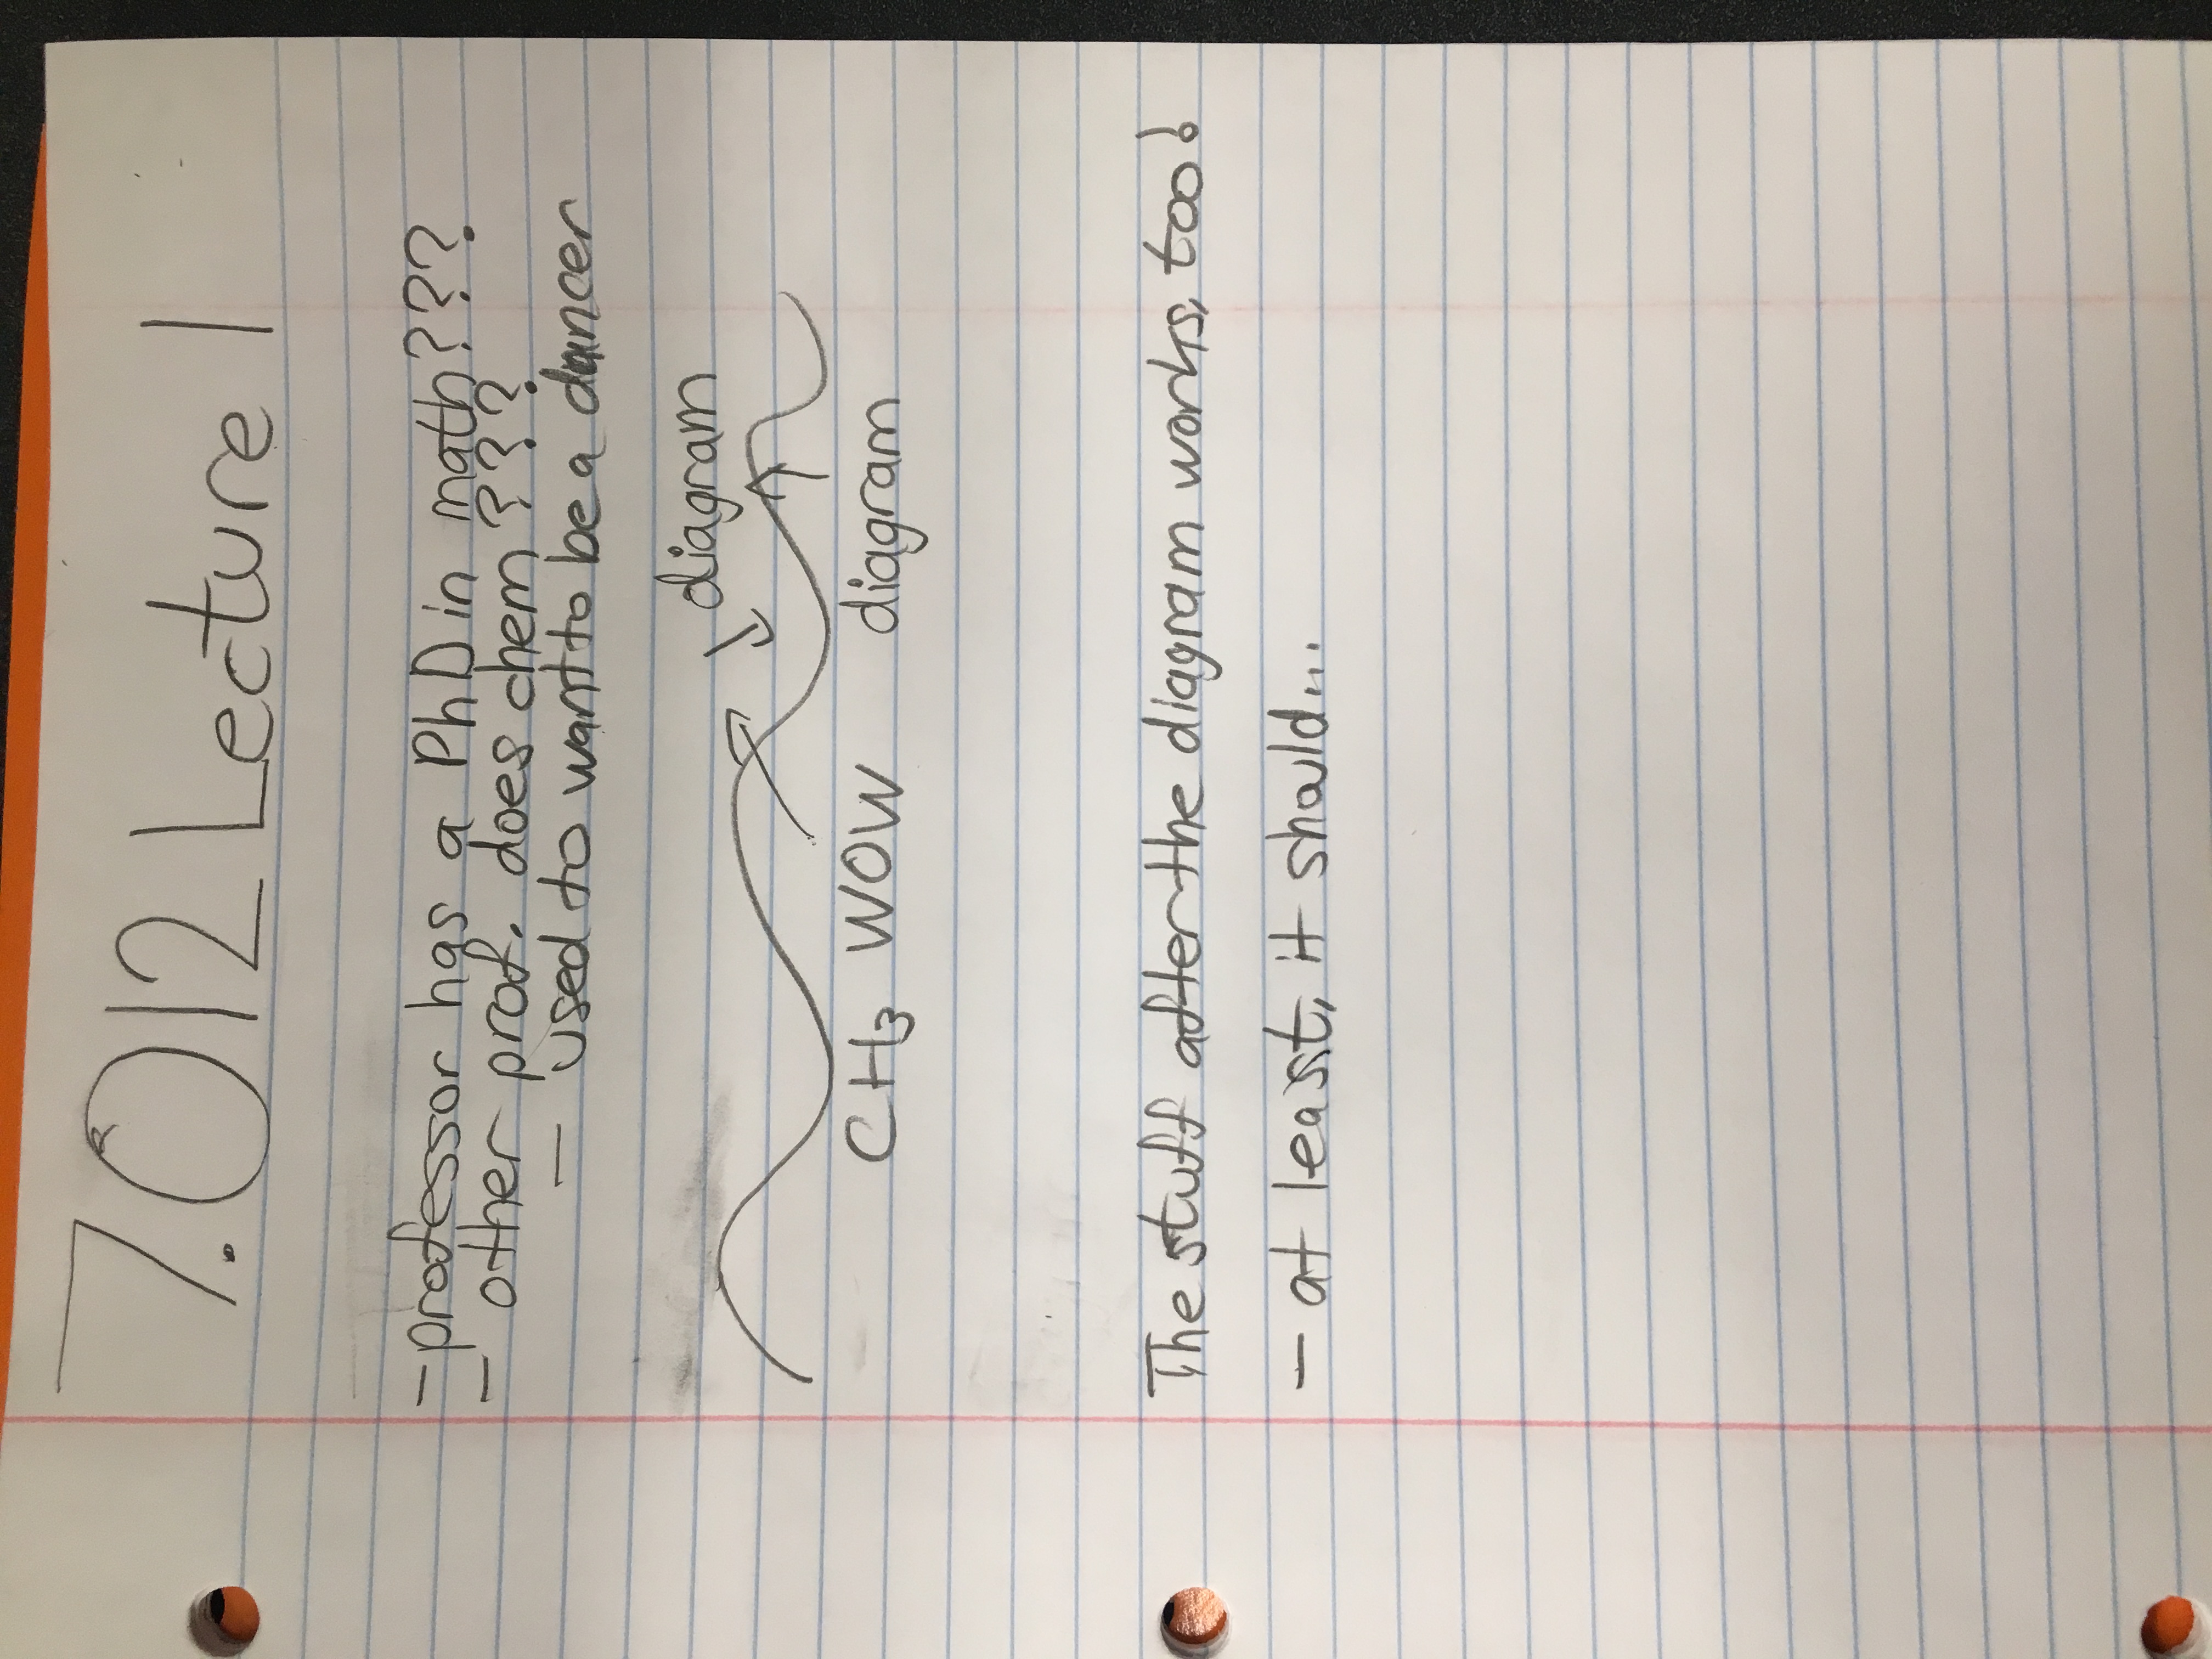 7.012 Lecture 1
- professor has a PhD in math???
- other prof. does chem???
- used to want to be a dancer
diagram
CH3 WOW diagram
The stuff after the diagram works, too!
- at least, it should...